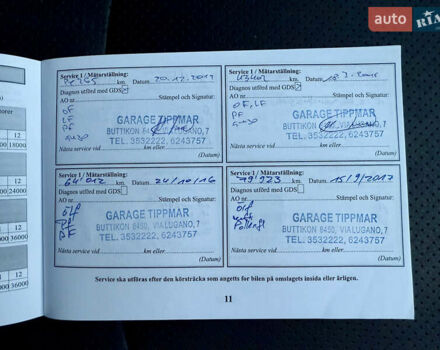 auto RIA
Service 1 / Mätarställning:
km. Datum 20.12.2012
Diagnos utförd med GDS
AO nr
Stämpel och Signatur:
OF
LF
PF
GARAGE TIPPMAR
BUTTIKON 8450, VIALUGANO,7
TEL. 3532222, 6243757
Nästa service vid km eller
(Datum)
Service 1 / Mätarställning:
43402 km. Datum
Diagnos utförd med GDS
AO nr
Stämpel och Signatur:
OF, LF
PF
GARAGE TIPPMAR
BUTTIKON 8450, VIALUGANO,7
TEL. 3532222, 6243757
Nästa service vid km eller
(Datum)
Service 1 / Mätarställning:
64'012 km. Datum 24/10/16
Diagnos utförd med GDS
AO nr
Stämpel och Signatur:
ölf
PF
GARAGE TIPPMAR
BUTTIKON 8450, VIALUGANO,7
TEL. 3532222, 6243757
Nästa service vid km eller
(Datum)
Service 1 / Mätarställning:
79'923 km. Datum 15/9/2017
Diagnos utförd med GDS
AO nr
Stämpel och Signatur:
ölf
Pollenf
GARAGE TIPPMAR
BUTTIKON 8450, VIALUGANO,7
TEL. 3532222, 6243757
Nästa service vid km eller
(Datum)
Service ska utföras efter den körsträcka som angetts for bilen på omslagets insida eller årligen.
11